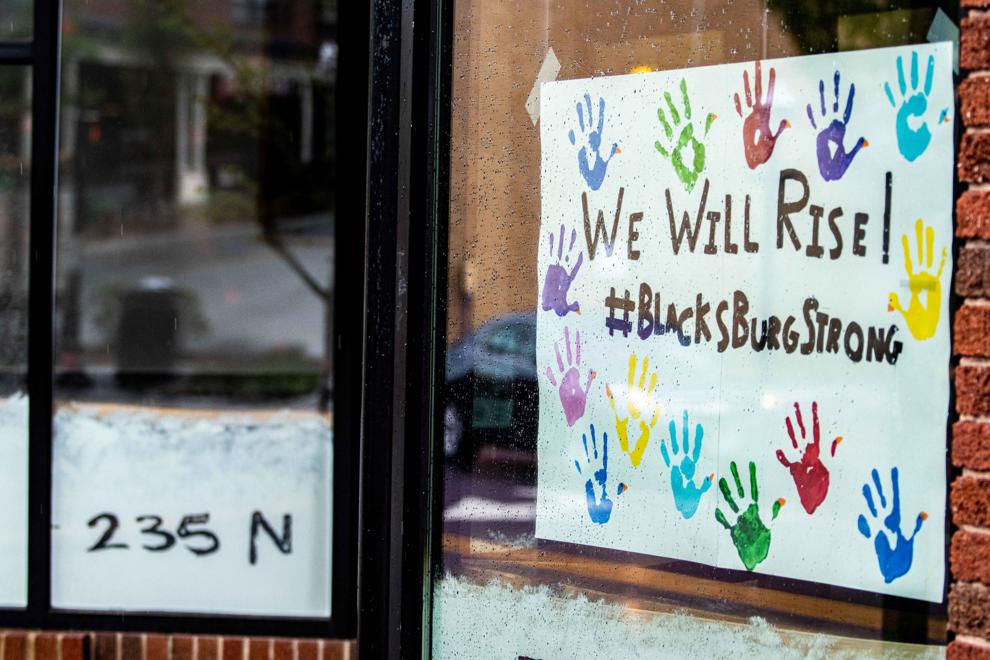 We Will Rise!
#BlacksBurgStrong
235 N